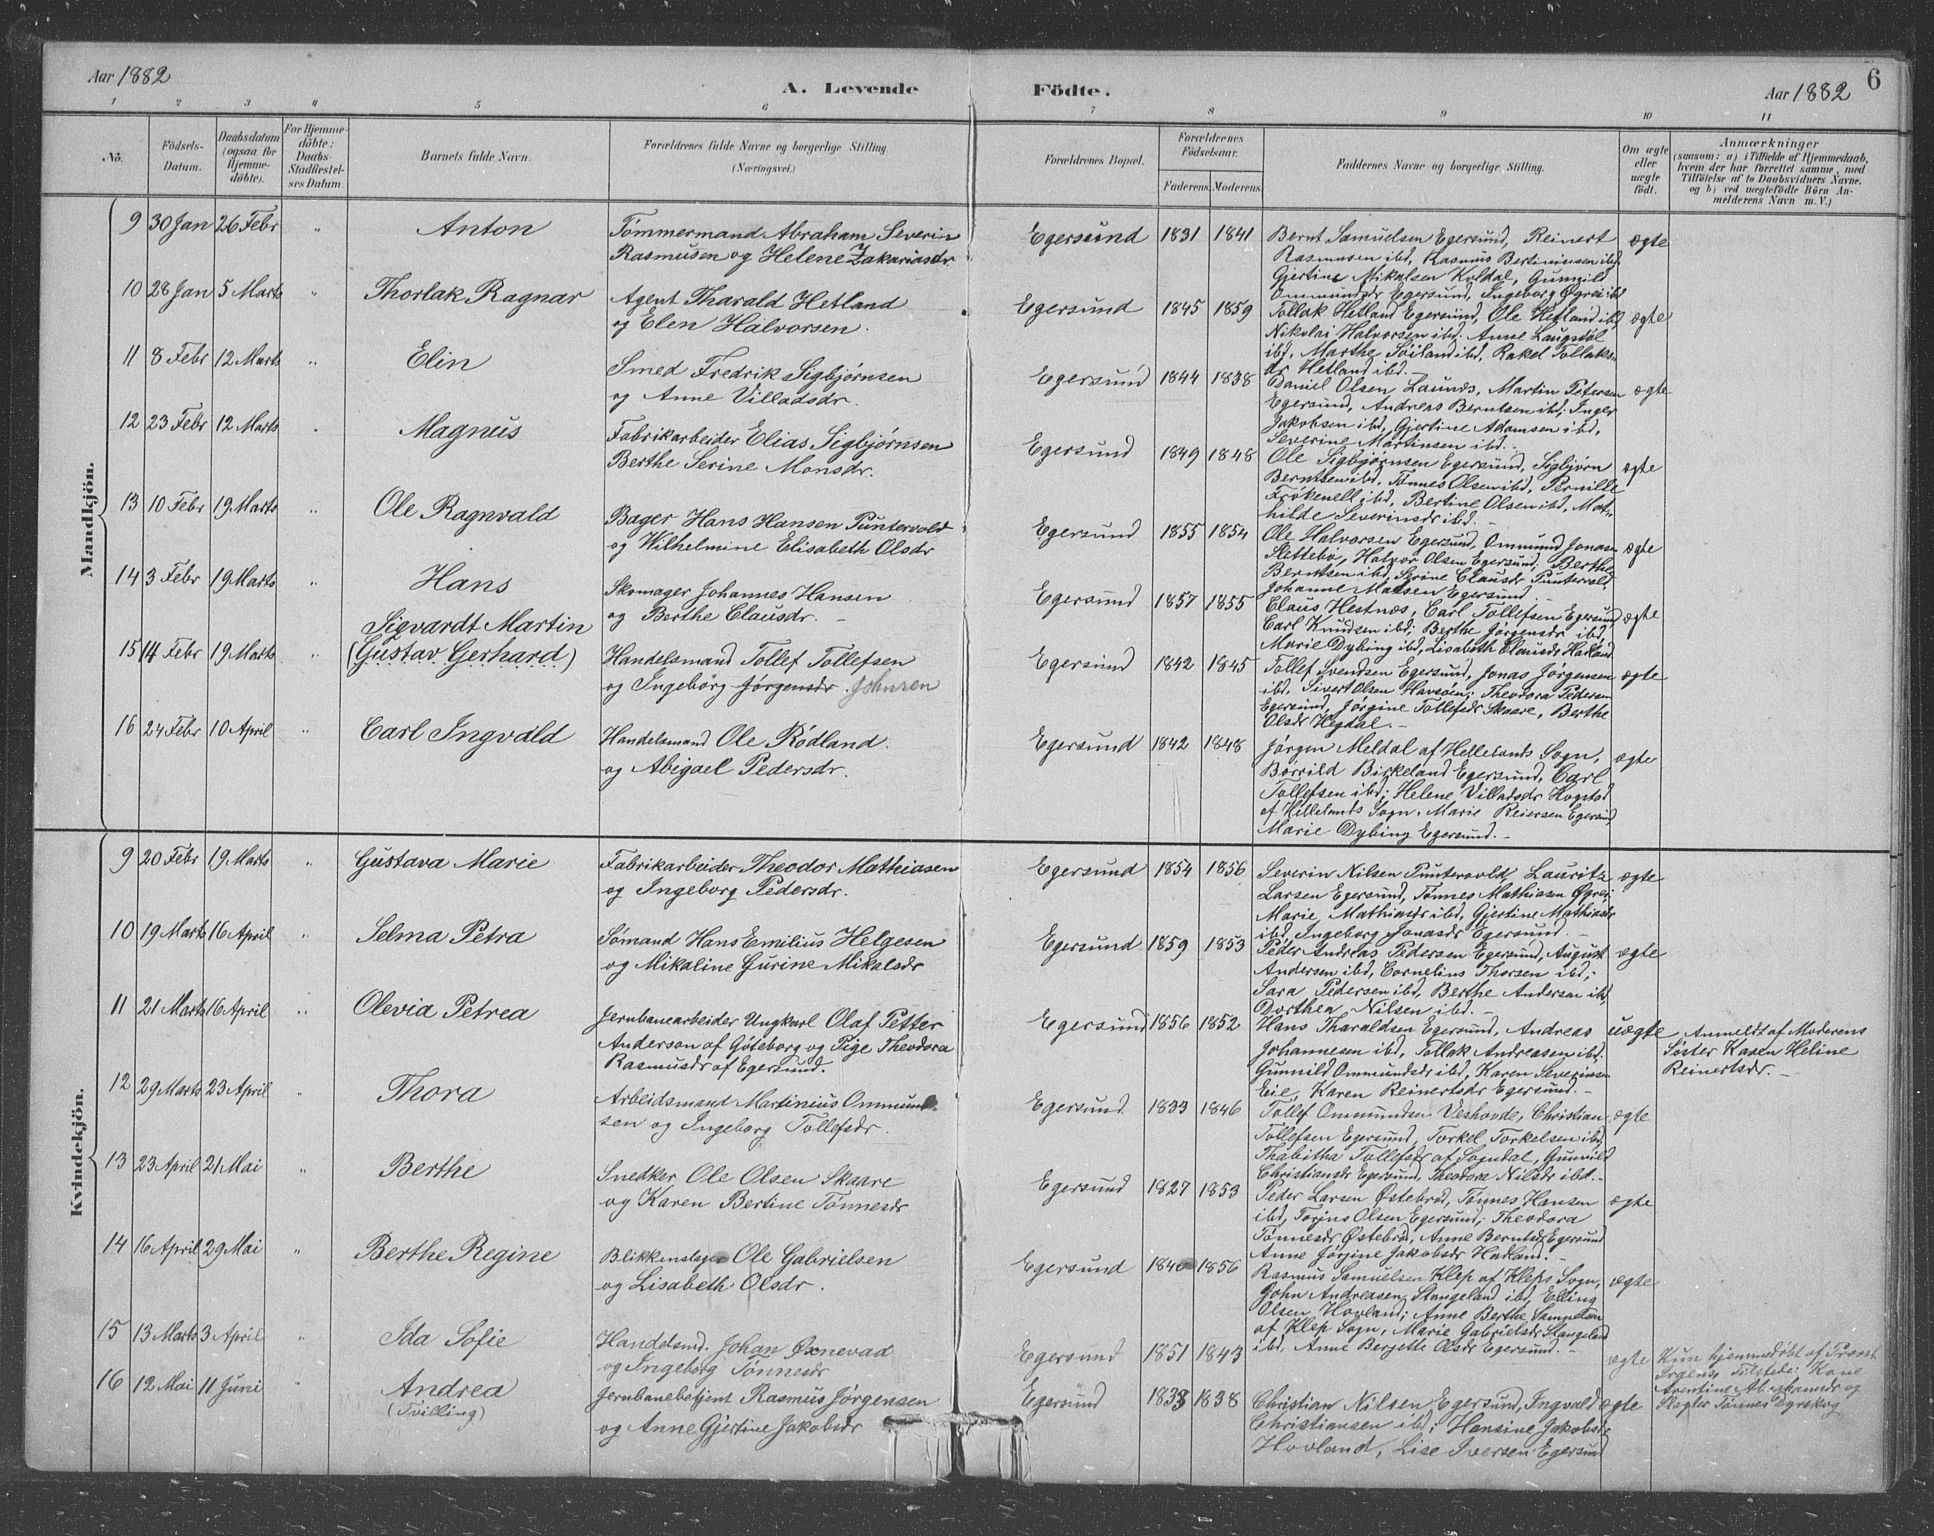 Aar 1882
A. Levende Födte.
Aar 1882
6
1 2 3 4 5 6 7 8 9 10 11
No.
Födsels-
Datum.
Daabsdatum
(ogsaa for
Hjemme-
döbte).
For Hjemme-
döbte:
Daabs-
Stadfæstel-
ses Datum.
Barnets fulde Navn.
Forældrenes fulde Navne og borgerlige Stilling
(Næringsvei.)
Forældrenes Bopæl.
Forældrenes
Födselsaar.
Faderens. Moderens.
Faddernes Navne og borgerlige Stilling.
Om ægte
eller
uægte
födt.
Anmærkninger
(saasom: a) i Tilfælde af Hjemmedaab,
hvem der har forrettet samme, med
Tilföielse af to Daabsvidners Navne,
og b) ved uægtefödte Börn An-
melderens Navn m. V.)
Mandkjön.
9 30 Jan 26 Febr " Anton
Tømmermand Abraham Severin
Rasmusen og Helene Zakariasdr.
Egersund 1831 1841
Bernt Samuelsen Egersund, Reinert
Rasmusen ibd, Rasmus Bertiniusen ibd,
Gjertine Mikalsen Koldal, Gunnild
Ommundsdr Egersund, Ingeborg Øgrei ibd
ægte
10 28 Jan 5 Marts " Thorlak Ragnar
Agent Tharald Hetland
og Elen Halvorsen.
Egersund 1845 1859
Tollak Hetland Egersund, Ole Hetland ibd,
Nikolai Halvorsen ibd. Anne Laugstøl
ibd, Marthe Tøiland ibd, Rakel Tollaks-
dr Hetland ibd.-
ægte
11 8 Febr 12 Marts " Elin
Smed Fredrik Sigbjørnsen
og Anne Villadsdr.
Egersund 1844 1838
Daniel Olsen Launes, Martin Petersen
Egersund, Andreas Berntsen ibd; Inger
Jakobsen ibd, Gjertine Adamsen ibd,
Severine Martinsen ibd.-
ægte
12 23 Febr 12 Marts " Magnus
Fabrikarbeider Elias Sigbjørnsen
Berthe Serine Monsdr.
Egersund 1849 1848
Ole Sigbjørnsen Egersund, Sigbjørn
Berntsen ibd, Tønnes Olsen ibd, Pernille
Frøkenell ibd, Bertine Olsen ibd, Mat-
hilde Severinsdr ibd.-
ægte
13 10 Febr 19 Marts " Ole Ragnvald
Bager Hans Hansen Puntervold
og Wilhelmine Elisabeth Olsdr
Egersund 1855 1854
Ole Halvorsen Egersund, Ommund Jonasen
Slettebø, Halvor Olsen Egersund; Berthe
Berntsen ibd, Serine Clausdr Puntervold,
Johanne Madsen Egersund.
ægte
14 3 Febr 19 Marts " Hans
Skomager Johannes Hansen
og Berthe Clausdr. -
Egersund 1857 1855
Claus Hestnæs, Carl Tollefsen Egersund
Carl Knudsen ibd; Berthe Jørgensdr ibd,
Marie Dybing ibd, Lisabeth Clausdr Hadland
ægte
15 14 Febr 19 Marts " Sigvardt Martin
(Gustav Gerhard)
Handelsmand Tollef Tollefsen
og Ingeborg Jørgensdr. Johnsen
Egersund 1842 1845
Tollef Svendsen Egersund, Jonas Jørgensen
ibd, Sivert Olsen Havsøen; Theodora Pedersen
Egersund, Jørgine Tollefsdr Skaare, Berthe
Olsdr Hegdal.-
ægte
16 24 Febr 10 April " Carl Ingvald
Handelsmand Ole Rødland
og Abigael Pedersdr.
Egersund 1842 1848
Jørgen Meldal af Hellelands Sogn,
Børrild Birkeland Egersund, Carl
Tollefsen ibd; Helene Villadsdr Hogstad
af Hellelands Sogn. Marie Reiersen Egersund
Marie Dybing Egersund.-
ægte
Kvindekjön.
9 20 Febr 19 Marts " Gustava Marie
Fabrikarbeider Theodor Mathiasen
og Ingeborg Pedersdr.
Egersund 1854 1856
Severin Nilsen Puntervold, Lauritz
Larsen Egersund, Tønnes Mathiasen Øgrei;
Marie Mathiasdr ibd, Gjertine Mathiasdr
ibd, Ingeborg Jonasdr Egersund.-
ægte
10 19 Marts 16 April " Selma Petra
Sømand Hans Emilius Helgesen
og Mikaline Gurine Mikalsdr
Egersund 1859 1853
Peder Andreas Pedersen Egersund, August
Andersen ibd, Cornelius Thorsen ibd;
Sara Pedersen ibd, Berthe Andersen ibd,
Dorthea Nilsen ibd.-
ægte
11 21 Marts 16 April " Olevia Petrea
Jernbanearbeider Ungkarl Olaf Petter
Anderson af Göteborg og Pige Theodora
Rasmusdr af Egersund.
Egersund 1856 1852
Hans Tharaldsen Egersund, Andreas
Johannesen ibd, Tollak Andreasen ibd.
Gunnild Ommundsdr ibd, Karen Severinsen
Eie, Karen Reinertsdr Egersund.-
uægte
Anmeldt af Moderens
Søster Karen Heline
Reinertsdr.-
12 29 Marts 23 April " Thora
Arbeidsmand Martinius Ommund-
sen og Ingeborg Tollefsdr.
Egersund 1833 1846
Tollef Ommundsen Veshovde, Christian
Tollefsen Egersund, Torkel Torkelsen ibd,
Thabitha Tollefsdr af Sogndal, Gunvild
Christiansdr Egersund, Theodore Nilsdr ibd.-
ægte
13 23 April 21 Mai " Berthe
Snedker Ole Olsen Skaare
og Karen Bertine Tønnesdr
Egersund 1827 1853
Peder Larsen Østebrød, Tønnes Hansen
ibd, Torjus Olsen Egersund; Theodora
Tønnesdr Østebrød, Anne Berntsdr Egersund
Anne Jørgine Jakobsdr Hadland.-
ægte
14 16 April 29 Mai " Berthe Regine
Blikkenslager Ole Gabrielsen
og Lisabeth Olsdr.
Egersund 1840 1856
Rasmus Samuelsen Klep af Kleps Sogn,
John Andreasen Stangeland ibd, Elling
Olsen Hovland; Anne Berthe Samuelsen
af Klep Sogn, Marie Gabrielsdr Stangeland
ibd, Anne Berjette Olsdr Egersund.-
ægte
15 13 Marts 3 April " Ida Sofie
Handelsmd. Johan Øxnevad
og Ingeborg Tønnesdr
Egersund 1851 1843
ægte
Kun hjemmedøbt af Provst
Tilstede: Kone
Abrahamsdr og
Slagter Tønnes Dyrskog
16 12 Mai 11 Juni Andrea
(Tvilling)
Jernbanebetjent Rasmus Jørgensen
og Anne Gjertine Jakobsdr
Egersund 1833 1838
Christian Nilsen Egersund, Ingvald
Christiansen ibd; Hansine Jakobsdr
Hovland, Lise Iversen Egersund
ægte